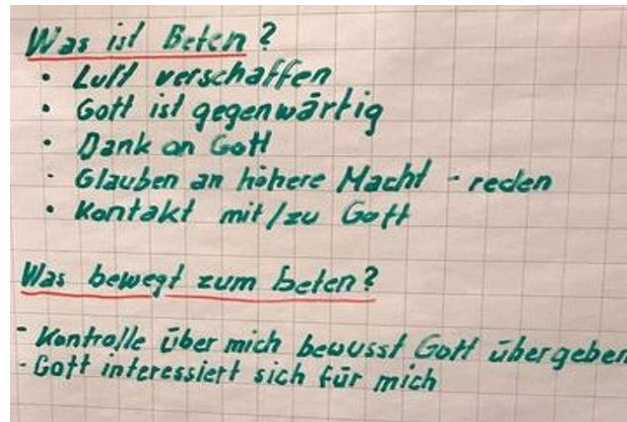 Was ist Beten?
• Luft verschaffen
• Gott ist gegenwärtig
• Dank an Gott
- Glauben an höhere Macht - reden
• Kontakt mit/zu Gott
Was bewegt zum beten?
- Kontrolle über mich bewusst Gott übergeben
- Gott interessiert sich für mich